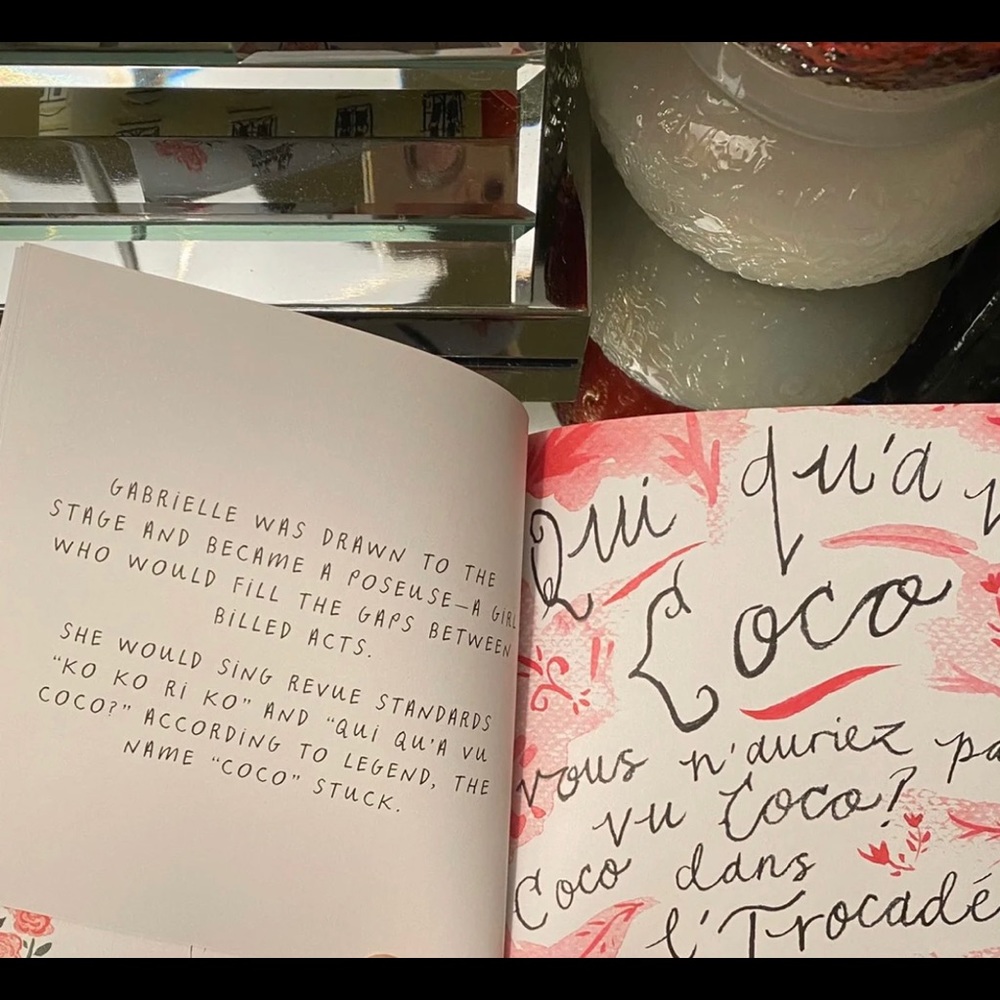 GABRIELLE WAS DRAWN TO THE
STAGE AND BECAME A POSEUSE—A GIRL
WHO WOULD FILL THE GAPS BETWEEN
BILLED ACTS.
SHE WOULD SING REVUE STANDARDS
"KO KO RI KO" AND "QUI QU'A VU
COCO?" ACCORDING TO LEGEND, THE
NAME "COCO" STUCK.
Qui qu'a
Coco
vous n'auriez pa
vu Coco?
Coco dans
l'Trocadé